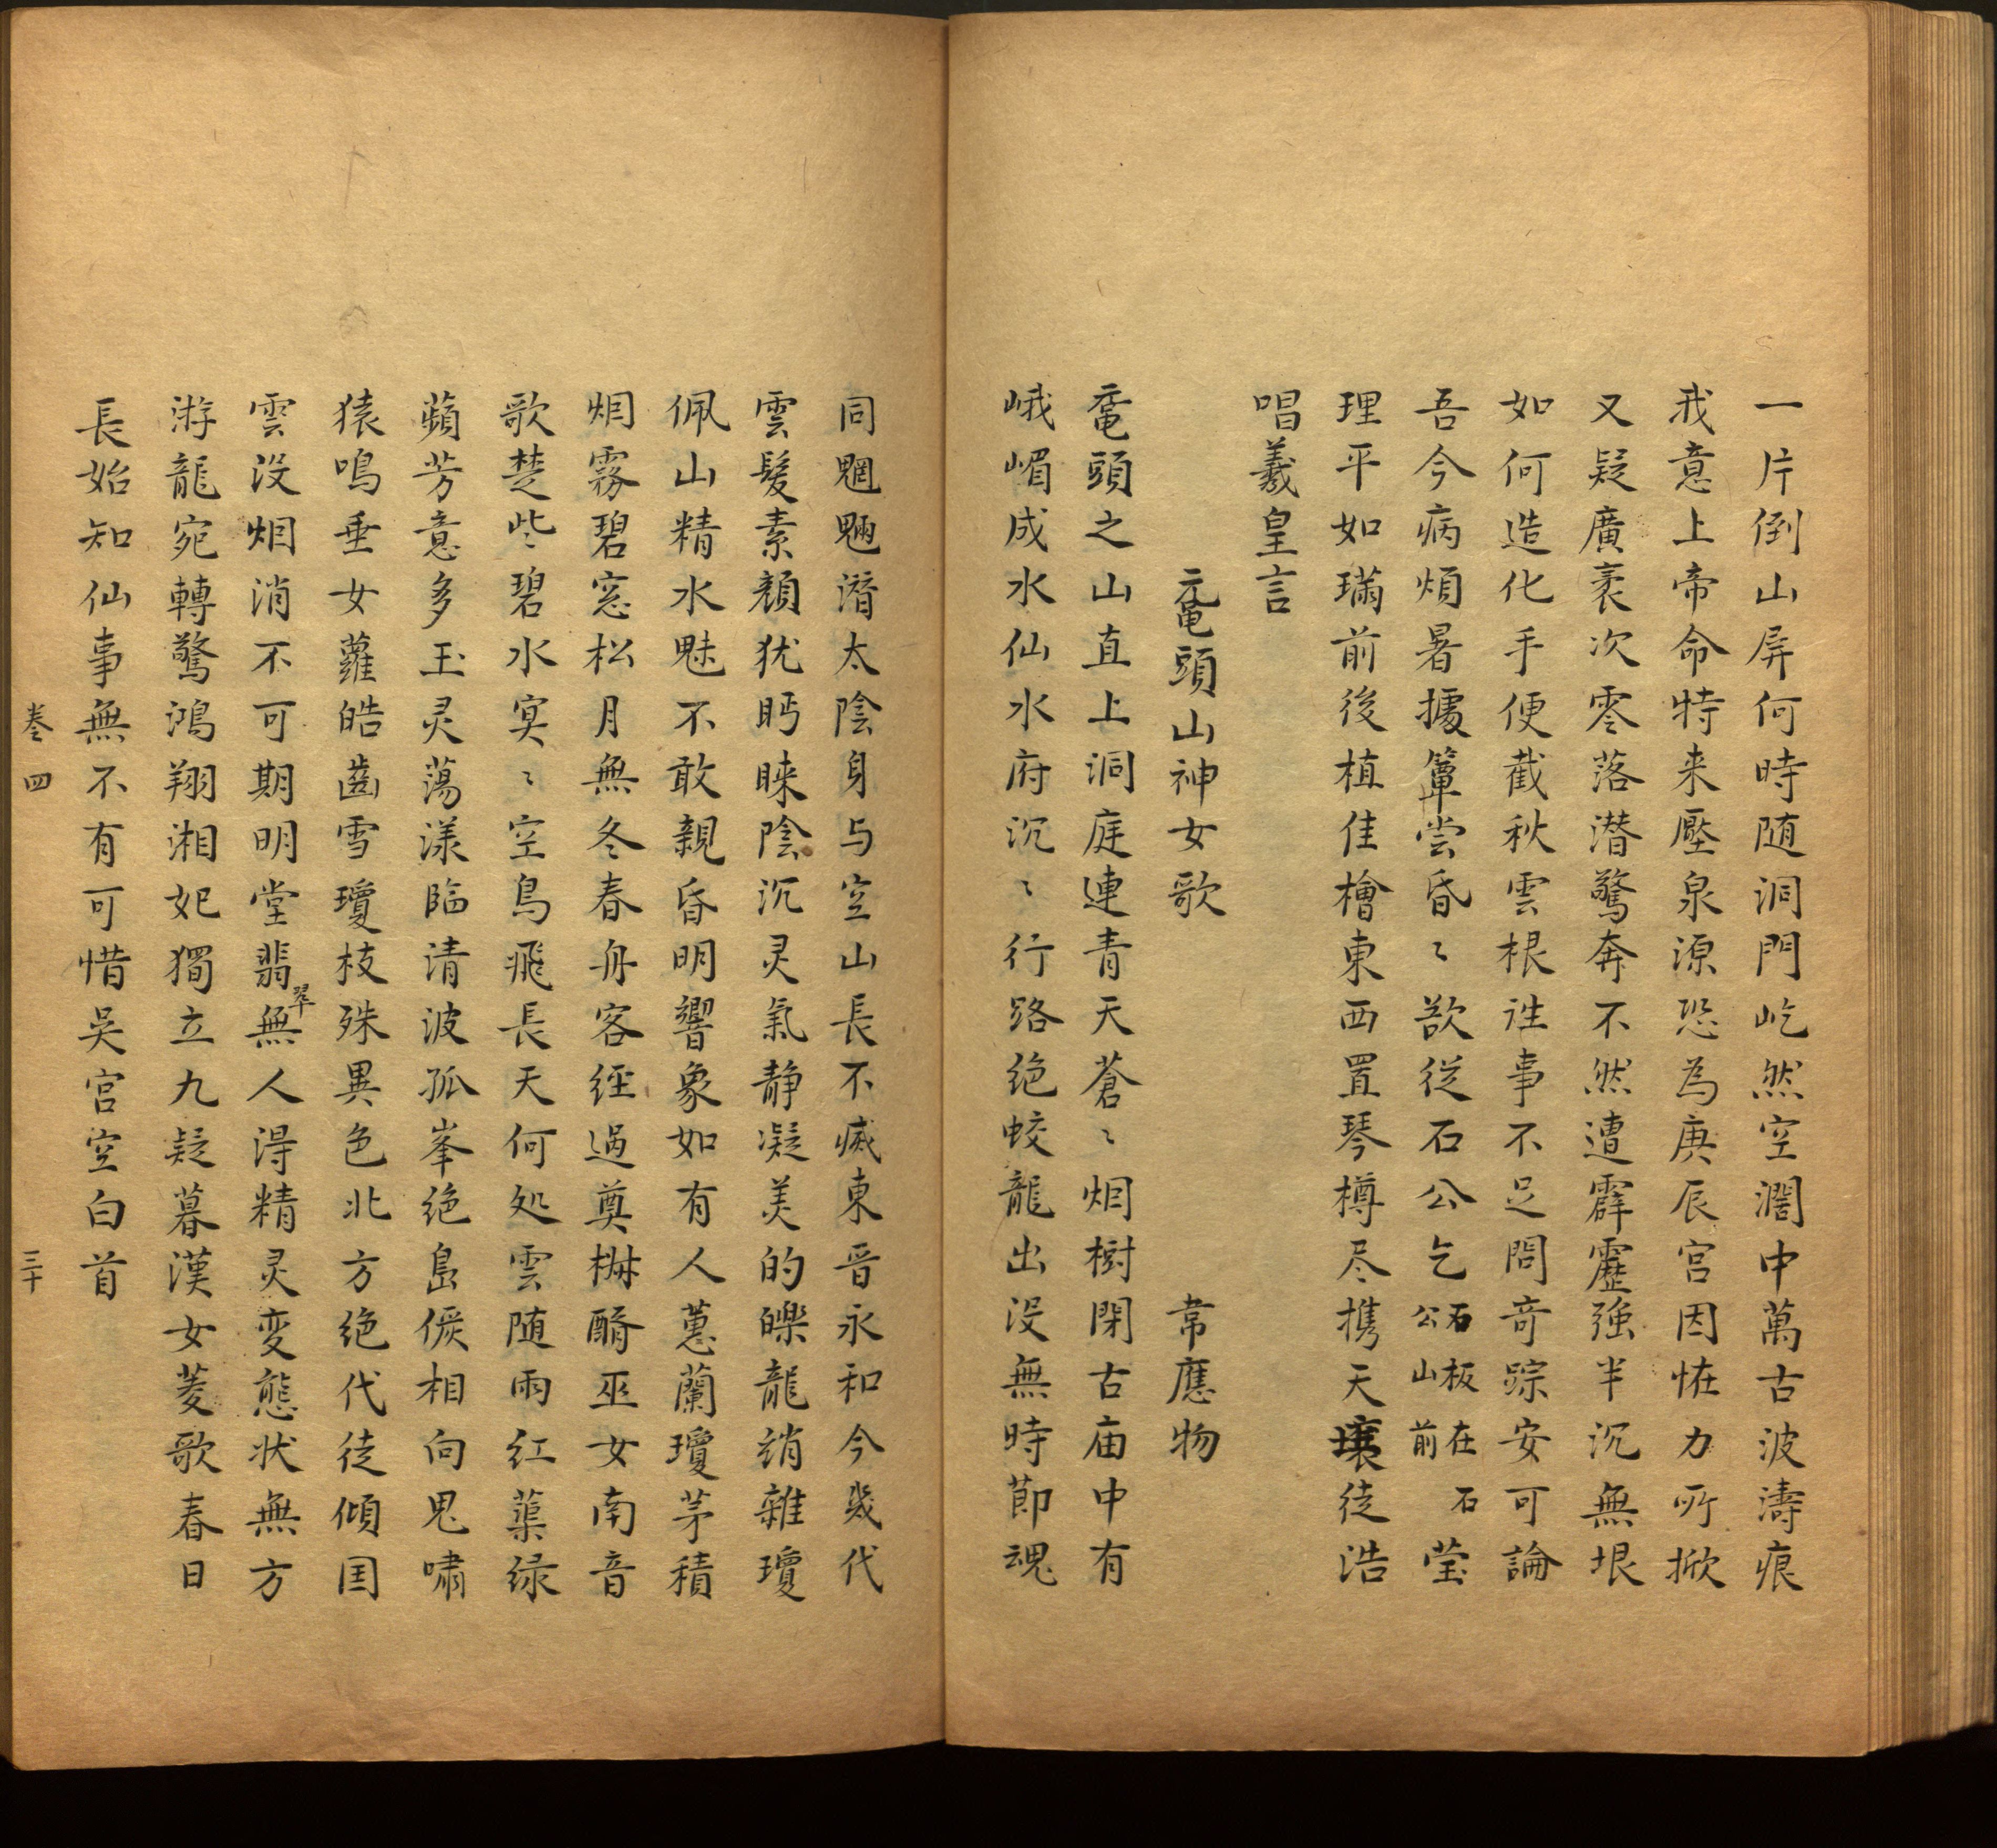 一片倒山屏何時随洞門屹然空濶中萬古波濤痕
我意上帝命特来壓泉源恐為庚辰宫因恠力所掀
又疑廣袤次零落潜驚奔不然遭霹靂強半沉無垠
如何造化手便截秋雲根徃事不足問竒踪安可論
吾今病煩暑據簟尝昏〻欲従石公乞石板在石公山前瑩
理平如璊前後植佳檜東西置琴樽尽携天壤徒浩
唱羲皇言
黿頭山神女歌 韋應物
黿頭之山直上洞庭連青天蒼〻烟樹閉古庙中有
峨嵋成水仙水府沉〻行路绝蛟龍出没無時節魂
同魍魎濳太陰身与空山長不滅東晋永和今幾代
雲髪素顏犹眄睐陰沉灵氣静凝美的皪龍綃雜瓊
佩山精水魅不敢親昏明響象如有人蕙蘭瓊茅積
烟霧碧窓松月無冬春舟客經過奠椒醑巫女南音
歌楚些碧水冥〻空鳥飛長天何処雲随雨红蕖绿
蘋芳意多玉灵蕩漾临清波孤峯绝島儼相向鬼啸
猿鳴垂女蘿皓齒雪瓊枝殊異色北方绝代徒傾国
雲没烟消不可期明堂翡翠無人得精灵变態状無方
游龍宛轉驚鴻翔湘妃獨立九疑暮漢女菱歌春日
長始知仙事無不有可惜吴宫空白首
卷四 三十